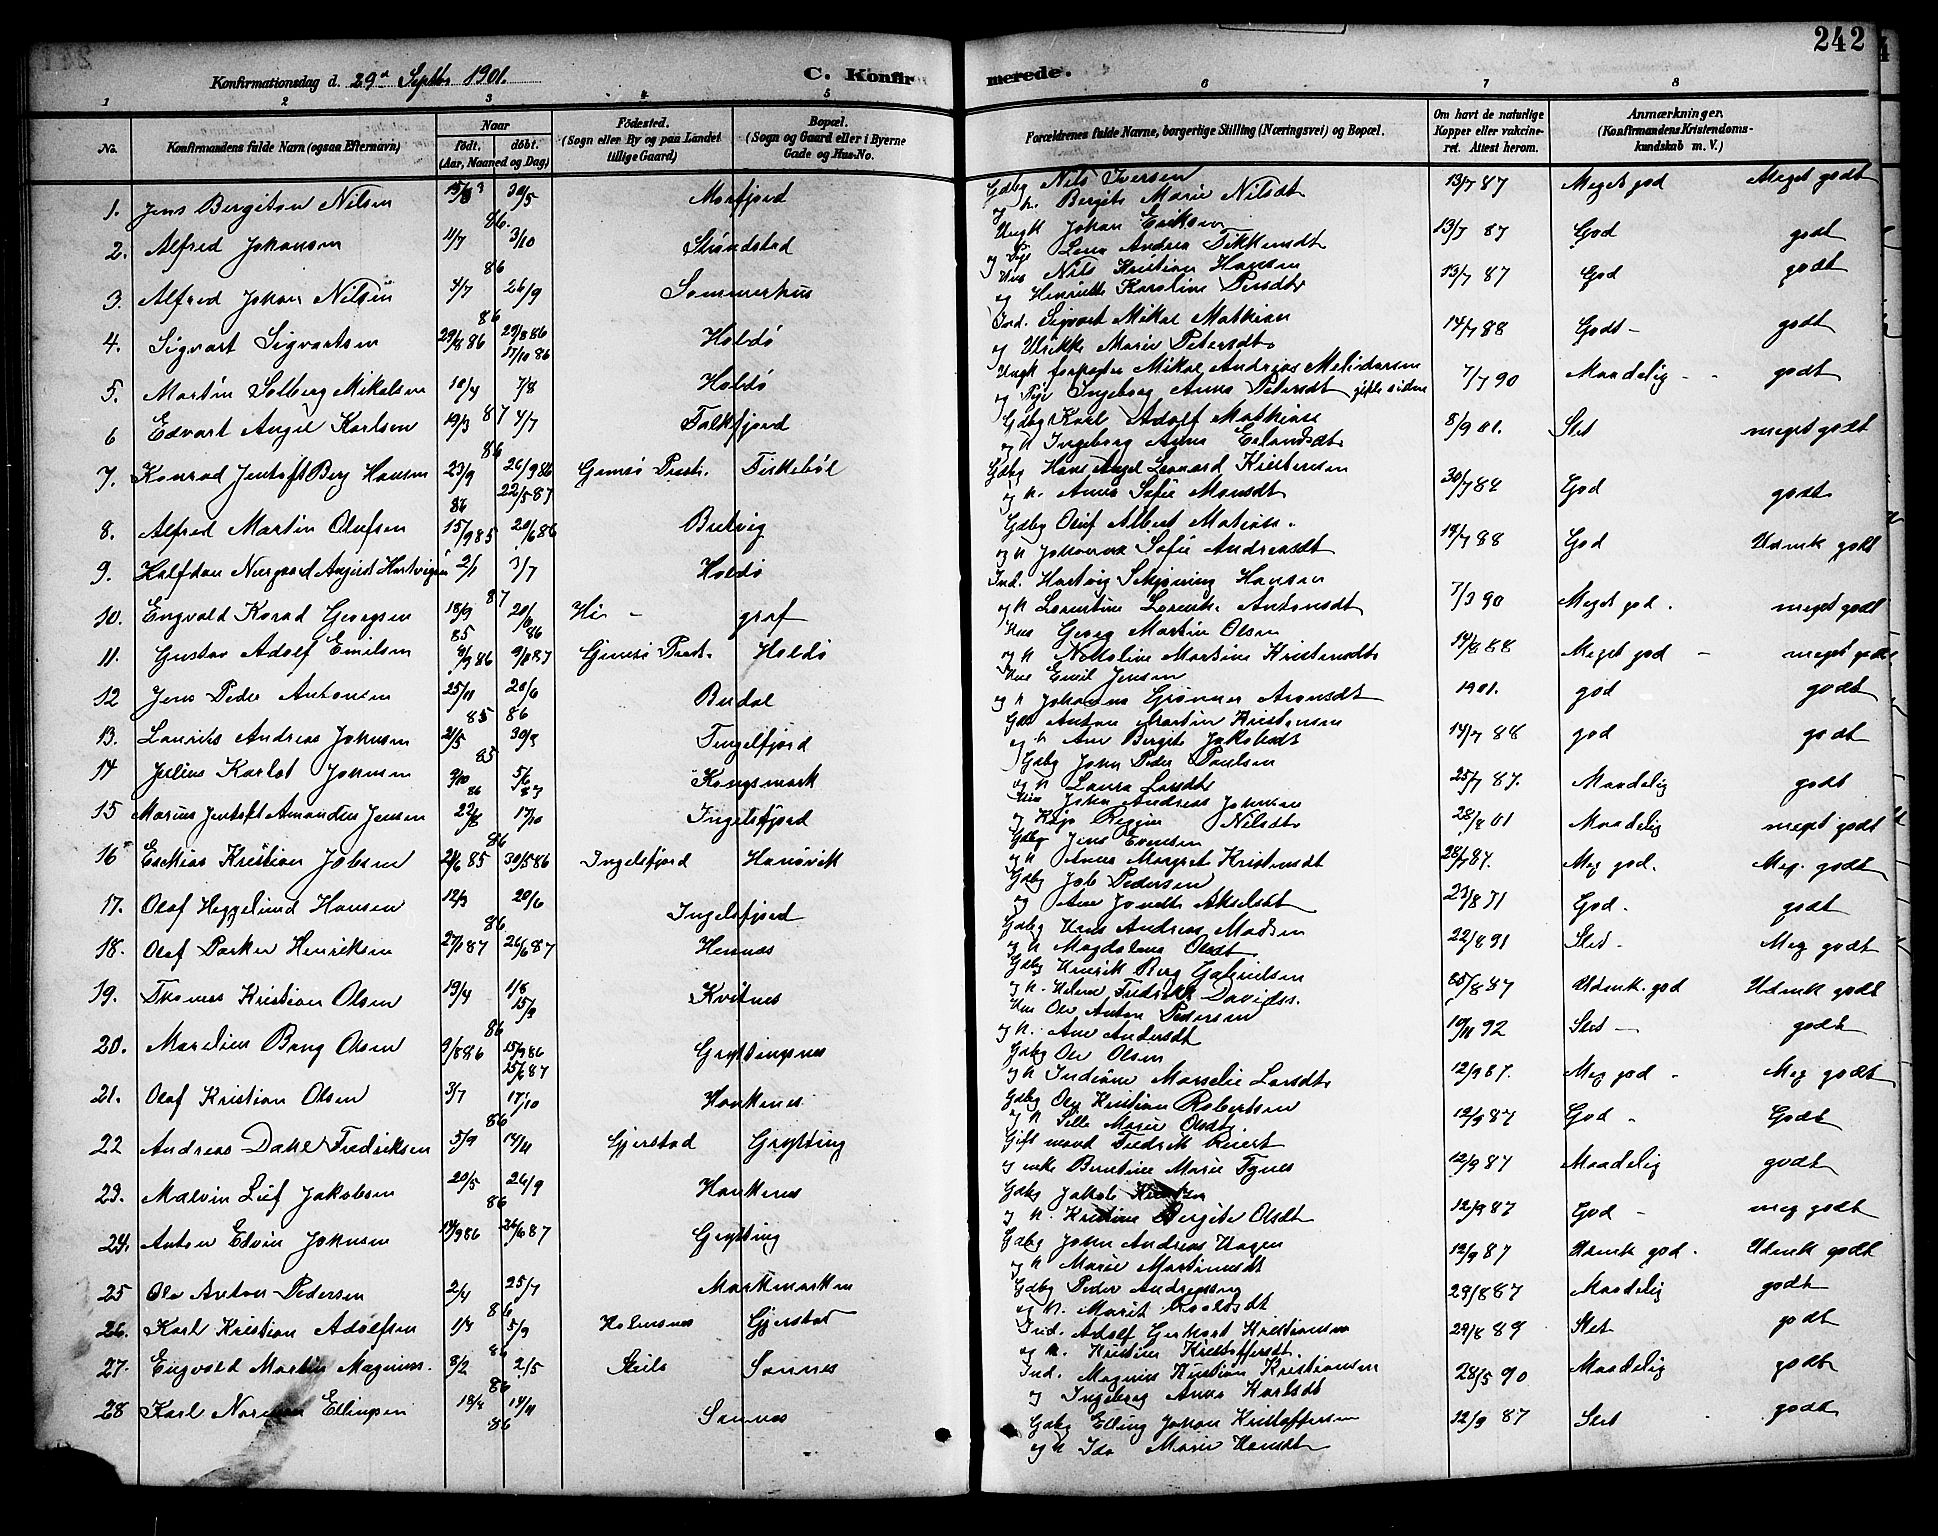 242
Konfirmationsdag d. 29de Septbr 1901.
C. Konfirmerede.
1 2 3 4 5 6 7 8
No.
Konfirmandens fulde Navn (ogsaa Efternavn)
Naar
født, døbt.
(Aar, Maaned og Dag)
Fødested.
(Sogn eller By og paa Landet tillige Gaard)
Bopæl.
(Sogn og Gaard eller i Byerne Gade og Hus-No.
Forældrenes fulde Navne, borgerlige Stilling (Næringsvei) og Bopæl.
Om havt de naturlige Kopper eller vakcineret. Attest herom.
Anmærkninger.
(Konfirmandens Kristendomskundskab m. V.)
1. Jens Bergiton Nilsen 30/5 86 Morfjord Gdbg Nils Iversen og h. Bergite Marie Nilsdt 13/7 87 Meget god Meget godt
2. Alfred Johansen 4/7 3/10 86 Strøndstad Ungk Johan Eriksen og Pige Lena Andrea Fikkensdt 13/7 87 God godt
3. Alfred Johan Nilsen 4/7 26/9 86 Sommerhus Hus Nils Kristian Hansen og Henriette Karoline 13/7 87 God godt
4. Sigvart Sigvartsen 29/8 86 29/8 86 17/10 86 Holdø Ind. Sigvart Mikal Mathias og Ulrikke Marie Petersdt 14/7 88 Godt - godt
5. Martin Solberg Mikalsen 10/4 7/8 87 Holdø Ungk forpagter Mikal Andreas og Pige Ingeborg Anna Petersdt gifte siden 7/7 90 Maadelig - godt
6 Edvart Angel Karlsen 19/3 4/7 86 Falkfjord Gdbg Karl Adolf Mathias og h Ingeborg Anna Erlandsdt 8/9 01. Slet meget godt
7. Konrad Jentoft Berg Hansen 23/9 86 26/9 86 22/5 87 Gimsø Præst. Firkebøl Gdbg Hans Angel Leonard Kristensen og h. Anna Sofie Monsdt God godt
8. Alfred Martin Olufsen 15/9 85 20/6 86 Butvig Gdbg Oluf Albert og h Johanna Sofie Andreasdt 14/7 88 God Udmk godt
9. Halfdan Nergaard August Hartvigsen 2/1 3/7 87 Holdø Ind. Hartvig Schjøning Hansen og h Lorentine Antonsdt 7/3 90 Meget god. meget godt
10. Engvald Konrad Georgsen 18/9 85 20/6 86 Hi - graf Hus Georg Martin Olsen og h Nikoline Martine Kristensdt 14/8 88 Meget god - meget godt
11. Gustav Adolf Emilsen 8/9 86 9/8 87 Gimsø Præst. Holdø Hus Emil Jensen og h Johanna Grønner Aronsdt 1901. god godt
12 Jens Peder Antonsen 25/11 85 20/6 86 Budal Gdbr Anton Martin Kristensen og h Ane Bergite Jakobsdt 14/7 88 god godt
13. Laurits Andreas Johnsen 21/5 85 30/3 Ingelfjord Gdbg John Peder Paulsen og h Laura Larsdt 25/7 87. Maadelig godt
14 Julius Karlot Johnsen 9/10 86 5/6 87 Kongsmark Hus John Andreas Johnsen og Kaja Regine Nilsdt 28/8 01 Maadelig meget godt
15 Marius Jentoft Amandus Jensen 22/8 17/10 86 Ingelsfjord Gdbg Jens Evensen og h Anna Margret Kristensdt 28/7 87. Meg god. Meg. godt
16 Esekias Kristian Jobsen 21/6 85 30/5 86 Ingelsfjord Hanøvik Gdbg Job Pedersen og Ane Jondt Akselsdt God. godt
17. Olaf Heggelund Hansen 12/3 20/6 86 Ingelsfjord Gdbg Hans Andreas Madsen og h Magdalena Olsdt 22/8 91 Slet. Meg godt
18. Olaf Parker Henriksen 27/1 87 26/6 87 Hennes Gdbg Henrik Berg Gabrielsen og h. Helene Fredrikke Davids. 25/8 87 Udmk. god Udmk godt
19. Thomas Kristian Olsen 19/4 1/8 15/9 86 Kvitnes Hus Ole Anton Pedersen og h. Ane Andersdt 10/11 92 Slet - godt
20. Marelius Bang Olsen 9/8 86 15/9 86 15/6 87 Gryttingsnes Gdbg Ole Olsen og h Indiane Marselie Larsdt 12/9 87. Meg god - Meg godt
21. Olaf Kristian Olsen 3/7 17/10 86 Haukenes Gdbg Ole Kristian Robertsen og h Sille Marie Olsdt 12/9 87 God - Godt
22 Andreas Dahl Fredriksen 5/9 14/11 Gjerstad Grytting Gift mand Fredrik og enke Berntine Marie Fynes 12/9 87 Maadelig godt
23. Malvin Leif Jakobsen 20/5 26/9 86 Haukenes Gdbg Jakob og h. Kristine Bergite Olsdt 12/9 87 God - meg godt
24. Anton Edvin Johnsen 14/9 86 26/6 87 Grytting Gdbg John Andreas Hagen og h Marie Martinusdt 12/9 87 Udmk god. Udmk godt
25 Ole Anton Pedersen 2/4 25/7 86 Markmarken Gdbg Peder Andreassen og h. Marit Roaldsdt 29/8 87 Maadelig godt
26. Karl Kristian Adolfsen 1/7 5/9 86 Holmsnes Gjerstad Ind. Adolf Gerhart Kristiansen og h. Kristine Kristoffersdt. 29/8 89 Slet godt
27. Engvald Martin Magnus. 8/2 2/5 86 Steilo Sannes Ind. Magnus Kristian Kristiansen og Ingeborg Anna Karlsdt 28/5 90 Maadelig godt
28 Karl Ellingsen 18/8 14/11 86 Sannes Gdbg Elling Johan Kristoffersen og h Ida Marie Hansdt 12/9 87 Slet godt